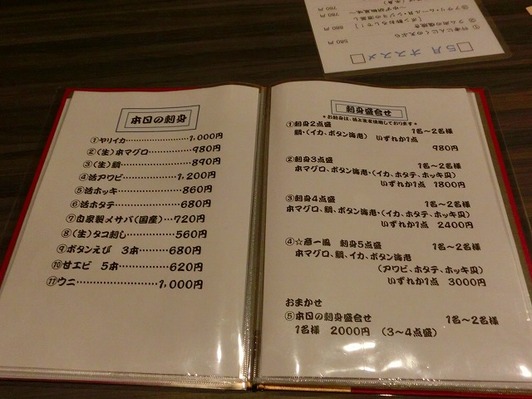 本日の刺身
①ヤリイカ………………1,000円
②(生)本マグロ…………980円
③(生)鯛…………………890円
④活アワビ………………1,200円
⑤活ホッキ………………860円
⑥活ホタテ………………680円
⑦自家製メサバ(国産)…720円
⑧(生)タコ刺し…………560円
⑨ボタンえび 3本………680円
⑩甘エビ 5本……………620円
⑪ウニ……………………1,000円
刺身盛合せ
①刺身2点盛 1名~2名様
鯛、(イカ、ボタン海老) いずれか1点
980円
②刺身3点盛 1名~2名様
本マグロ、鯛、ボタン海老、(イカ、ホタテ、ホッキ貝)
いずれか1点 1800円
③刺身4点盛 1名~2名様
本マグロ、鯛、ボタン海老、(イカ、ホタテ、ホッキ貝)
いずれか1点 2400円
④☆彦一風 刺身5点盛 1名~2名様
本マグロ、鯛、イカ、ボタン海老、
(アワビ、ホタテ、ホッキ貝)
いずれか1点 3000円
おまかせ
⑤本日の刺身盛合せ 1名~2名様
1名様 2000円 (3~4点盛)
5月オススメ
580円
780円